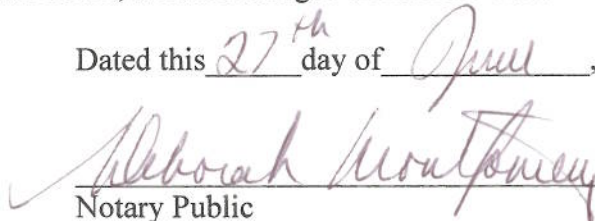 Dated this 27th day of April,
Deborah Montgomery
Notary Public